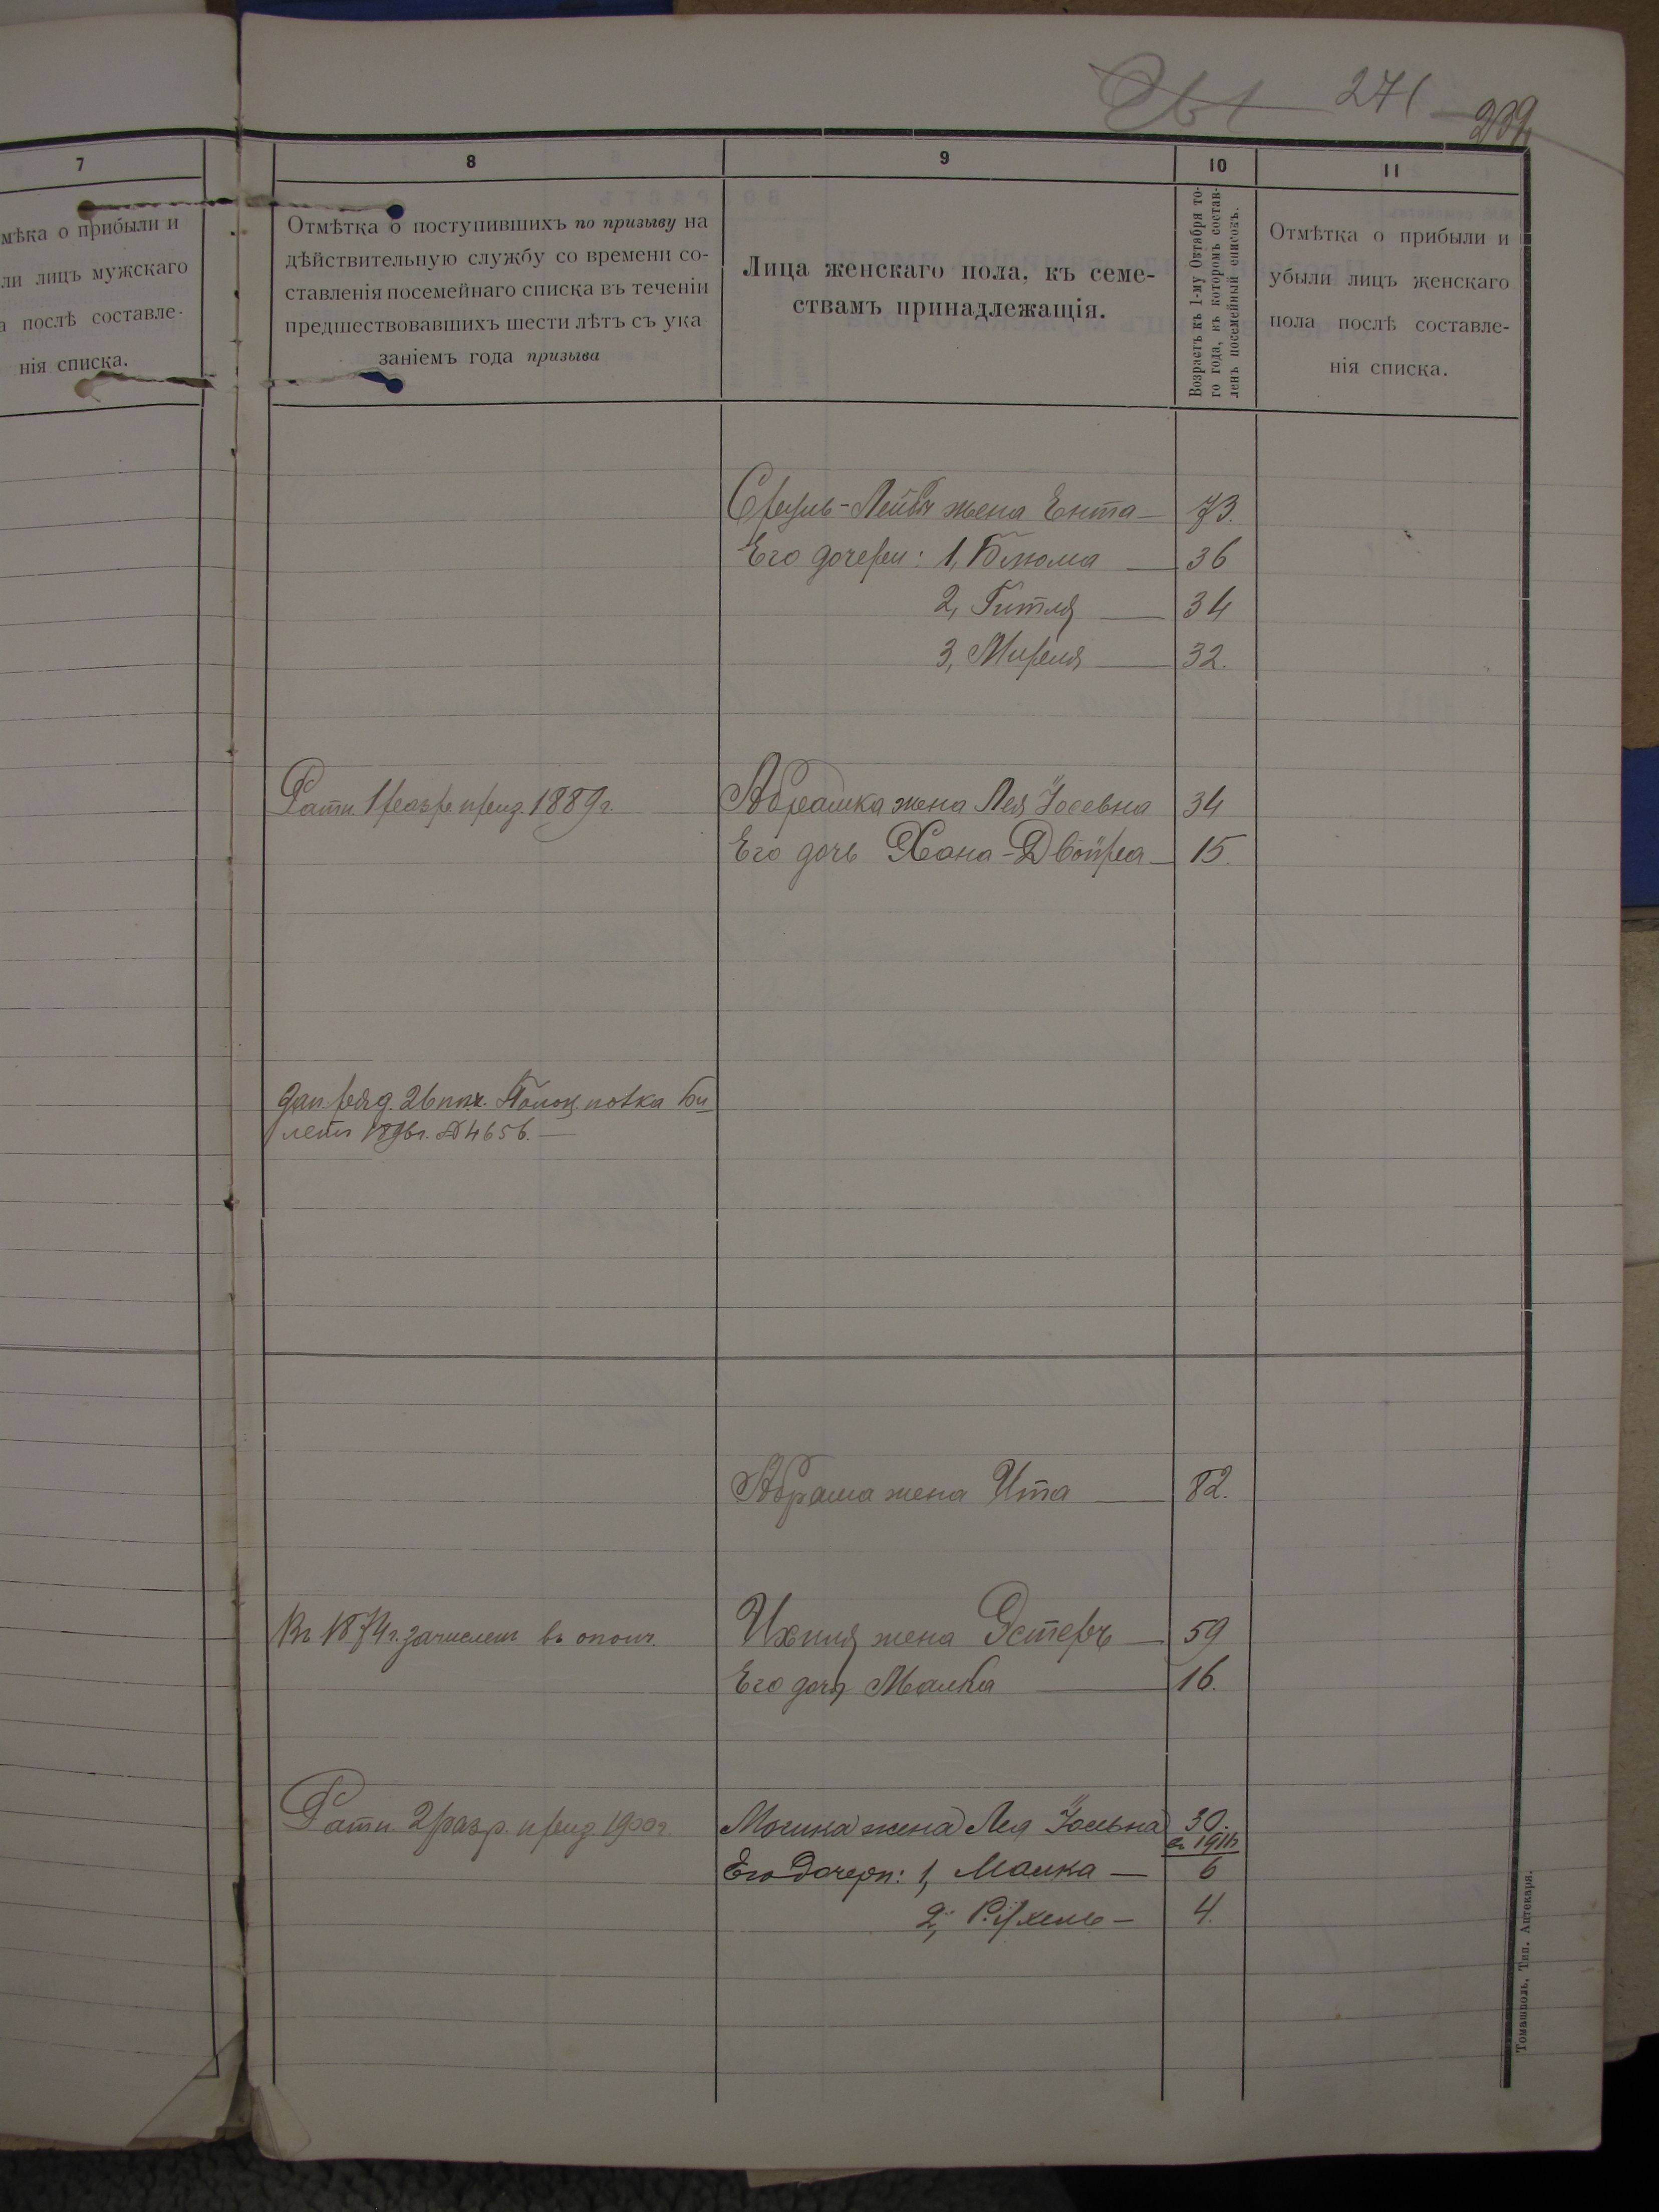 271
239
7
мѣка о прибыли и
ли лицъ мужскаго
а послѣ составле-
нія списка.
8
Отмѣтка о поступившихъ по призыву на
дѣйствительную службу со времени со-
ставленія посемейнаго списка въ теченіи
предшествовавшихъ шести лѣтъ съ ука
заніемъ года призыва
9
Лица женскаго пола, къ семе-
ствамъ принадлежащія.
10
Возрастъ къ 1-му Октября то-
го года, къ которомъ состав-
ленъ посемейный списокъ.
11
Отмѣтка о прибыли и
убыли лицъ женскаго
пола послѣ составле-
нія списка.
Сруль-Лейбы жена Ента — 73.
Его дочери: 1, Блюма — 36
2, Гитля — 34
3, Миреля — 32.
Ратн. 1 разр. приз. 1889 г.
Абрашка жена Лея Іосевна 34
Его дочь Хана-Двойра — 15.
ряд. 26 пѣх. полка Би
летъ 1896 г. № 4656. —
Абрама жена Ита — 82.
Въ 1874 г. зачисленъ въ ополч.
Ихиля жена Эстеръ — 59
Его дочь Малка — 16.
Ратн. 2 разр. приз. 1900 г.
Мошка жена Лея Іосевна 30.
Его дочери: 1, Малка — 6
2, Рухель — 4.
Томашполь, Тип. Аптекаря.